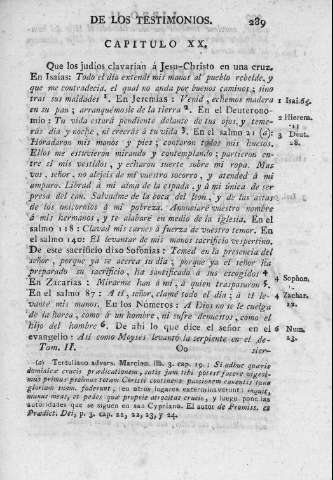 DE LOS TESTIMONIOS. 289
CAPITULO XX.
Que los judíos clavarían á Jesu-Christo en una cruz.
En Isaías: Todo el dia extendé mis manos al pueblo rebelde, y
que me contradecia, el qual no anda por buenos caminos; sino
tras sus maldades 1. En Jeremías: Venid, echemos madera
en su pan; arranquémosle de la tierra 2. En el Deuterono-
mio: Tu vida estará pendiente delante de tus ojos, y teme-
rás dia y noche, ni creerás á tu vida 3. En el salmo 21 (a):
Horadaron mis manos y pies; contaron todos mis huesos.
Ellos me estuvieron mirando y contemplando; partieron entre
el mis vestidos, y echaron suerte sobre mi ropa. Mas
vos, señor, no alejeis de mí vuestro socorro, y atended á mi
amparo. Librad á mi alma de la espada, y á mi única de ser
presa del can. Salvadme de la boca del leon, y de las astas
de los unicornios á mi pobreza. Anunciaré vuestro nombre
á mis hermanos, y te alabaré en medio de la iglesia. En el
salmo 118: Clavad mis carnes á fuerza de vuestro temor. En el
salmo 140: El levantar de mis manos sacrificio vespertino.
De este sacrificio dixo Sofonías: Temed en la presencia del
señor, porque ya se acerca su dia; porque ya el señor ha
preparado su sacrificio, ha santificado á sus escogidos 4.
En Zacarías: Mirarme han á mí, á quien traspasaron 5.
En el salmo 87: A tí, señor, clamé todo el dia; á tí le-
vanté mis manos. En los Números: A Dios no se le cuelga
de la horca, como á un hombre, ni sufre denuestos, como el
hijo del hombre 6. De ahí lo que dice el señor en el
evangelio: Así como Moyses levantó la serpiente en el de-
Tom. II. Oo sier-
1 Isai. 64.
2 Hierem.
11.
3 Deut.
28.
4 Sophon.
1.
4 Zachar.
12.
6 Num.
23.
(a) Tertuliano advers. Marcion. lib. 3. cap. 19.: Si adhuc quaeris
dominicae crucis praedicationem, satis jam tibi potest facere vigesi-
mus primus psalmus totam Christi continens passionem canentis jam
gloriam suam. foderunt, en otros lugares exterminaverunt inquit,
manus meas, et pedes quae propria atrocitas crucis, y luego pone las
autoridades que se siguen en san Cypriano. El autor de Promiss. et
Praedict. Dei, p. 3. cap. 21, 22, 23, y 24.